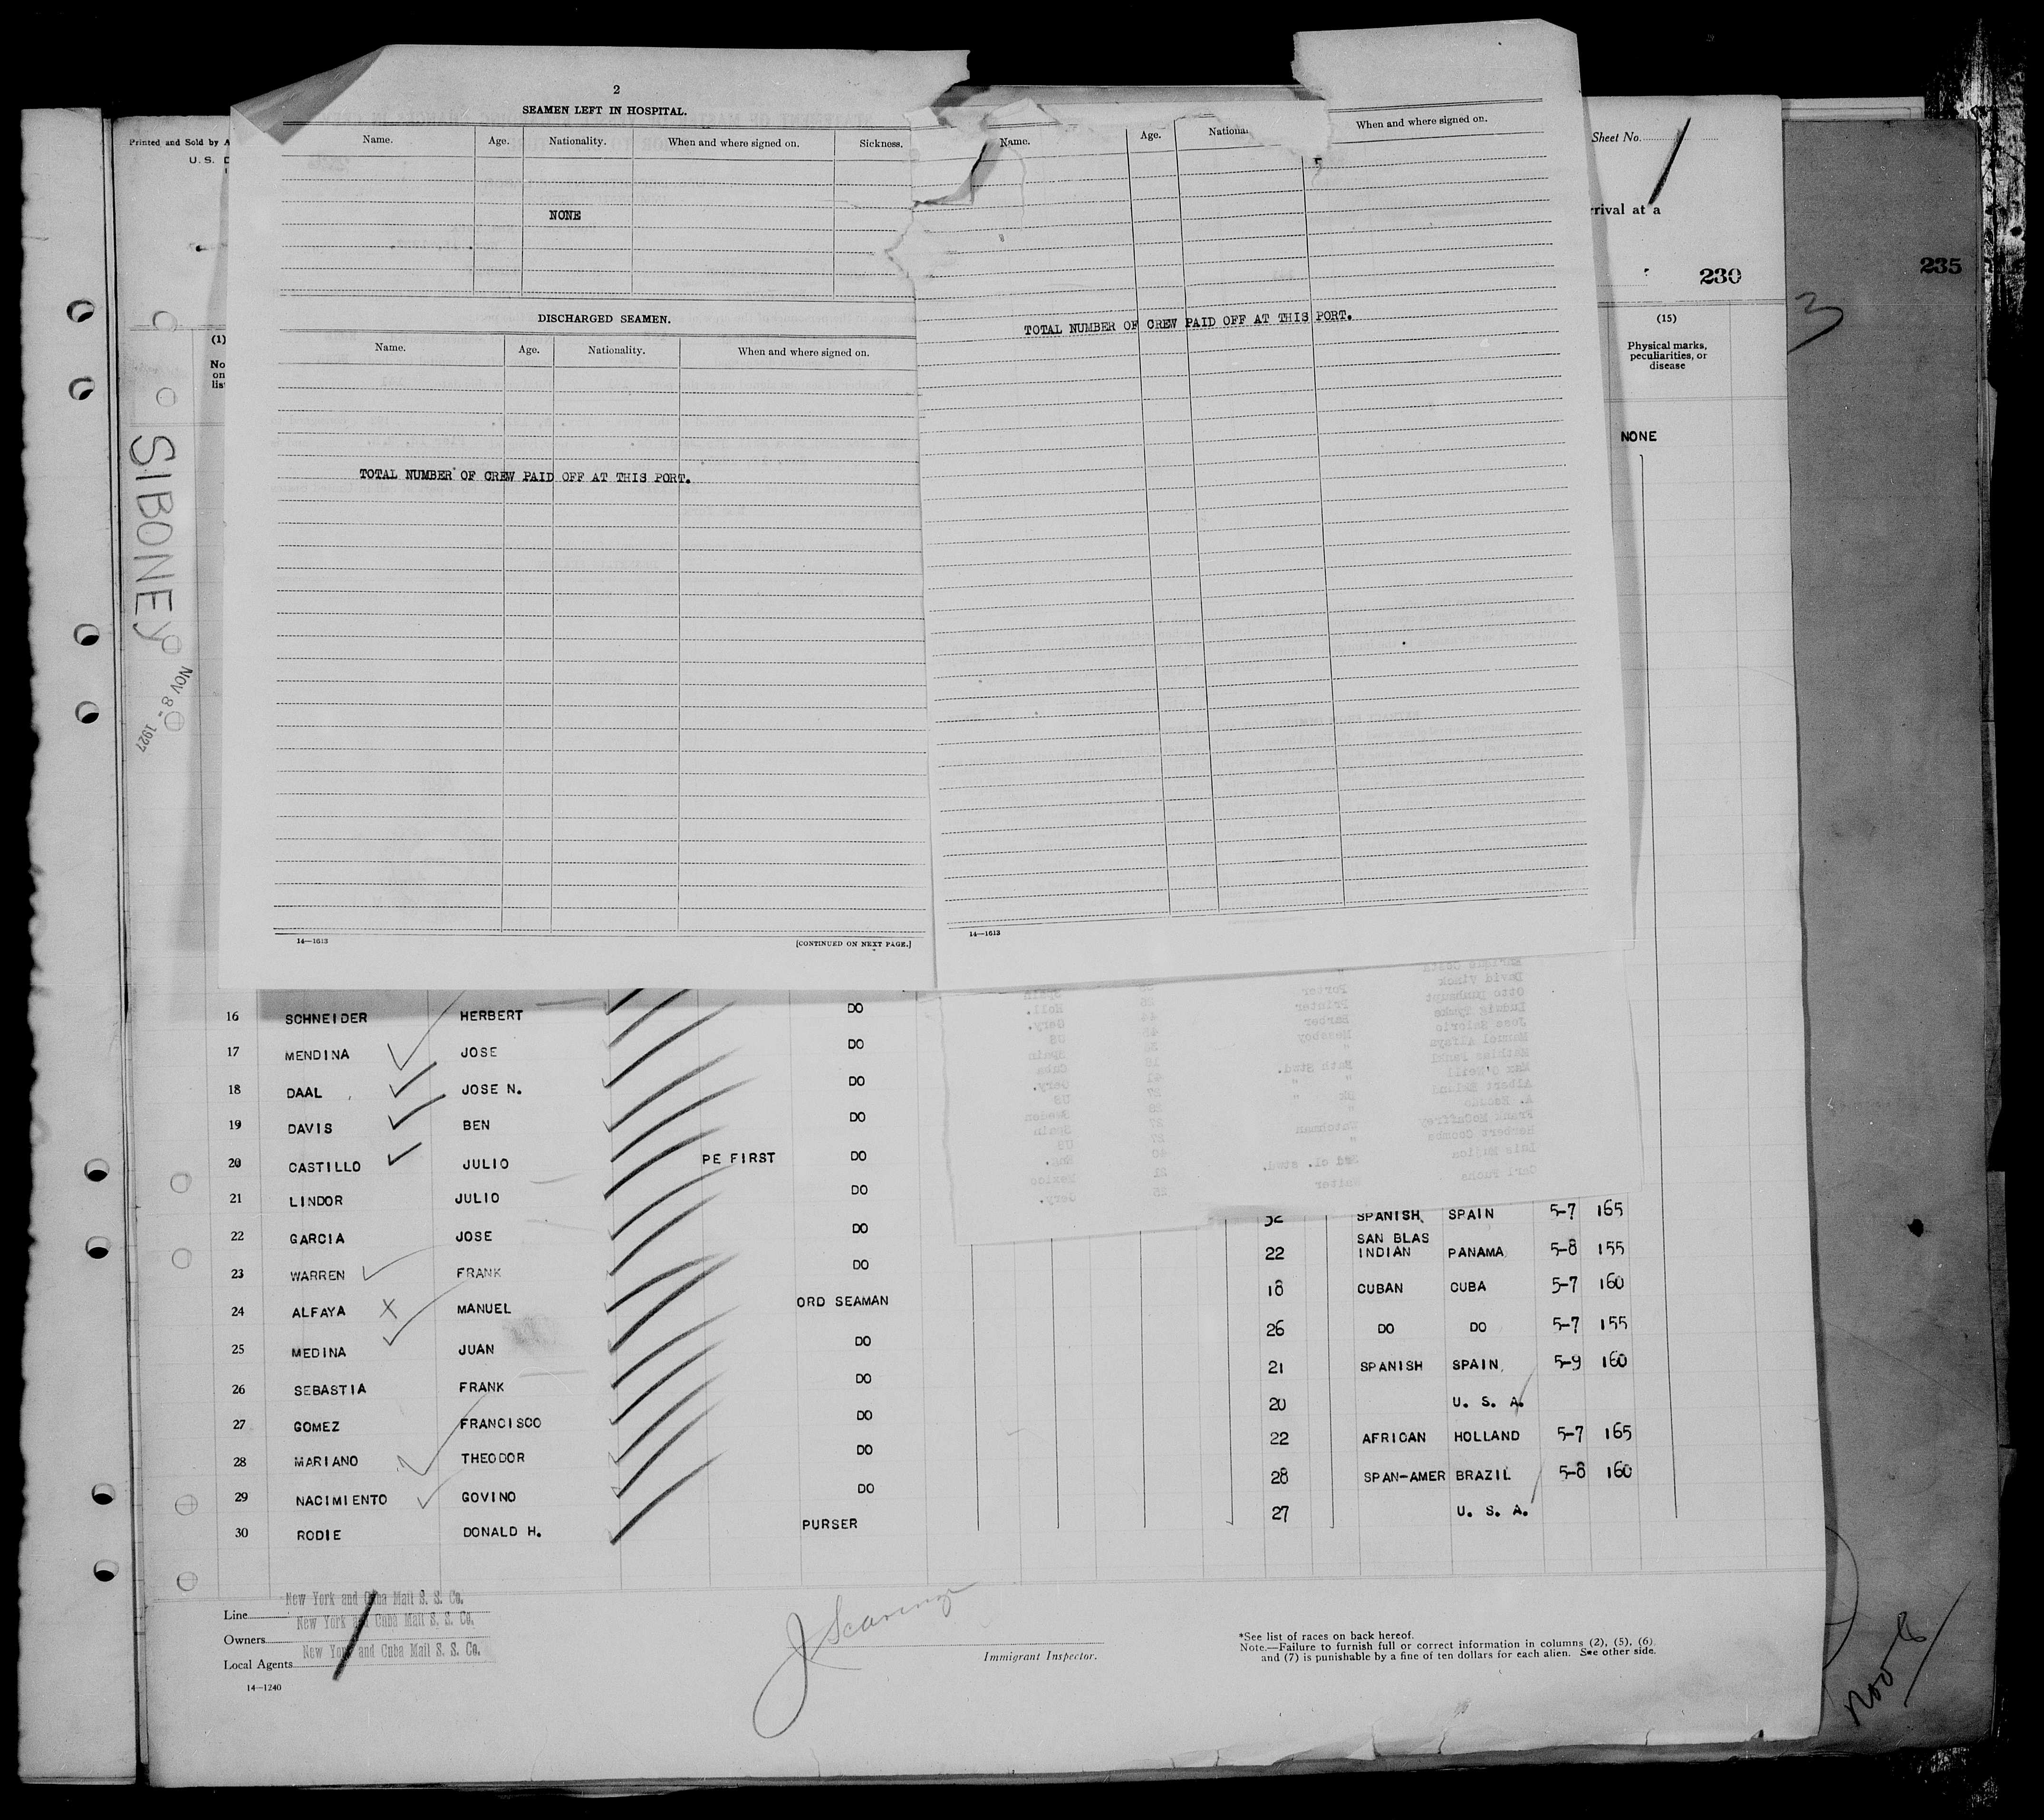 2
SEAMEN LEFT IN HOSPITAL.
Name. Age. Nationality. When and where signed on. Sickness.
NONE
DISCHARGED SEAMEN.
Name. Age. Nationality. When and where signed on.
TOTAL NUMBER OF CREW PAID OFF AT THIS PORT.
14—1613 [CONTINUED ON NEXT PAGE.]
Name. Age. Nationa When and where signed on.
TOTAL NUMBER OF CREW PAID OFF AT THIS PORT.
14—1613
Printed and Sold by A
U. S. D
Sheet No.
rival at a
230
235
3
(1)
No
on
list
(15)
Physical marks,
peculiarities, or
disease
NONE
SIBONEY
NOV 8 - 1927
16 SCHNEIDER HERBERT DO
17 MENDINA JOSE DO
18 DAAL JOSE N. DO
19 DAVIS BEN DO
20 CASTILLO JULIO PE FIRST DO
21 LINDOR JULIO DO
22 GARCIA JOSE DO
23 WARREN FRANK DO
24 ALFAYA X MANUEL ORD SEAMAN
25 MEDINA JUAN DO
26 SEBASTIA FRANK DO
27 GOMEZ FRANCISCO DO
28 MARIANO THEODOR DO
29 NACIMIENTO GOVINO DO
30 RODIE DONALD H. PURSER
32 SPANISH SPAIN 5-7 165
22 SAN BLAS INDIAN PANAMA 5-8 155
18 CUBAN CUBA 5-7 160
26 DO DO 5-7 155
21 SPANISH SPAIN 5-9 160
20 U. S. A.
22 AFRICAN HOLLAND 5-7 165
28 SPAN-AMER BRAZIL 5-8 160
27 U. S. A.
Line New York and Cuba Mail S. S. Co.
Owners New York and Cuba Mail S. S. Co.
Local Agents New York and Cuba Mail S. S. Co.
14—1240
Immigrant Inspector.
*See list of races on back hereof.
Note.—Failure to furnish full or correct information in columns (2), (5), (6)
and (7) is punishable by a fine of ten dollars for each alien. See other side.
Nov 8